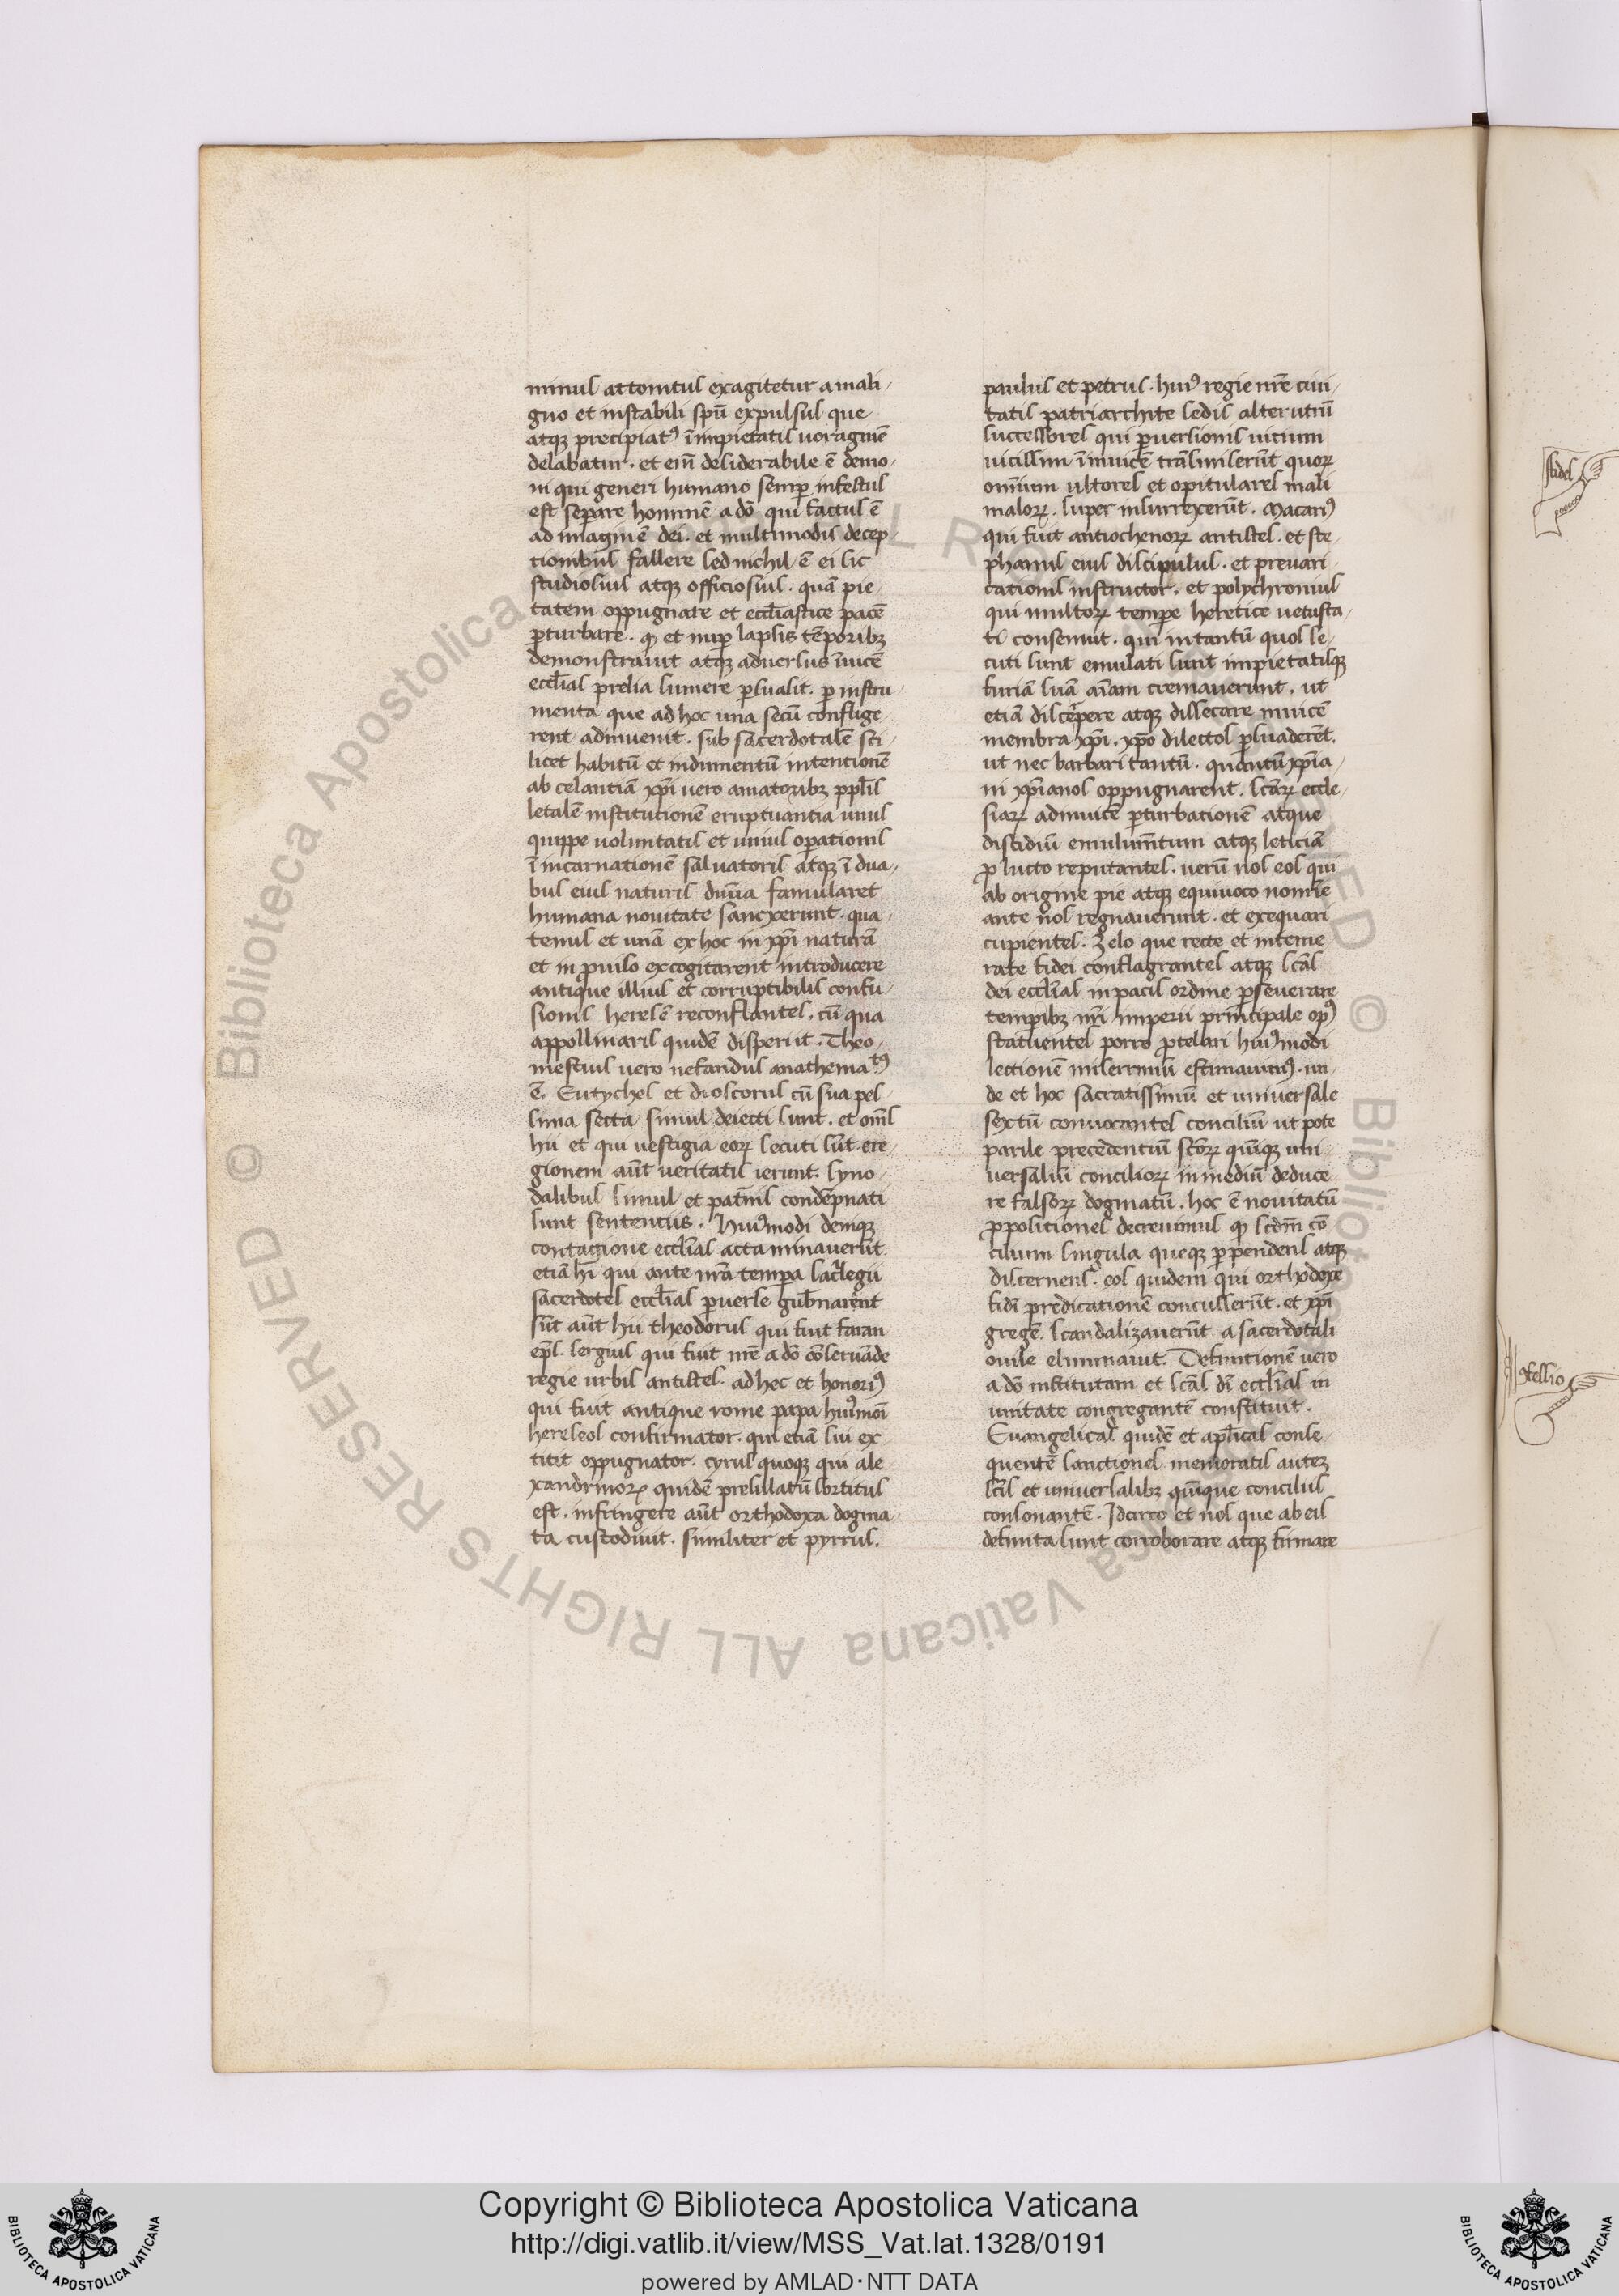 minus attonitus exagitetur a mali-
gno et instabili spū expulsus que
atqꝫ precipiatꝰ ī impietatis uoraginē
delabatur. et em̄ desiderabile ē demo-
ni qui generi humano semꝑ infestus
est seꝑare hominē a dō. qui factus ē
ad imaginē dei. et multimodis decep-
tionibus fallere sed nichil ē ei sic
studiosius atqꝫ officiosius. quā pie-
tatem oppugnare et eccl̄iastice pacē
ꝑturbare. qꝫ et nuꝑ lapsis tēporibꝫ
demonstrauit atqꝫ aduersus īuicē
eccl̄ias prelia sumere ꝑsuasit. ꝑ instru-
menta que ad hoc una secū conflige-
rent adinuenit. sub sacerdotalē sci-
licet habitū et indumentū intentionē
ab celantiā xp̄i uero amatoribꝫ ppl̄is
letalē institutionē eruptuantia unus
quippe uoluntatis et unius oꝑationis
ī incarnationē saluatoris atqꝫ ī dua-
bus eius naturis diuīa famularet
humana nouitate sancxerunt. qua-
tenus et unā ex hoc in xp̄i naturā
et in ꝓuiso excogitarent introducere
antique illius et corruptibilis confu-
sionis heresē reconflantes. cū qua
appollinaris quidē disperiit. Theo-
mestius uero nefandus anathematꝰ
ē. Eutyches et dioscorus cū sua pes-
sima secta simul deiecti sunt. et om̄s
hii et qui uestigia eoꝝ secuti sūt. ere-
gionem aūt ueritatis ierunt. syno-
dalibus simul et pat̄nis condēpnati
sunt sententiis. Huiꝰmodi deniqꝫ
contagione eccl̄ias acta minauerūt
etiā hī qui ante nr̄a tempora sacrilegii
sacerdotes eccl̄ias ꝑuerse gub̄narent
sūt aūt hii theodorus qui fuit faran
ep̄s. sergius qui fuit nr̄e a dō cōseruāde
regie urbis antistes. ad hec et honoriꝰ
qui fuit antique rome papa huiꝰmōi
hereseos confirmator. qui etiā sui ex-
titit oppugnator. cyrus quoqꝫ qui ale-
xandrinoꝝ quidē presulatū sortitus
est. infringere aūt orthodoxa dogma-
ta custodiuit. similiter et pyrrus.
paulus et petrus. huiꝰ regie nr̄e ciui-
tatis patriarchite sedis alterutrū
successores qui ꝑuersionis uicium
uicissim ī inuicē trāsmiserūt quoꝝ
omnium ultores et opitulares mali
maloꝝ. super insurrexerūt. Macariꝰ
qui fuit antiochenoꝝ antistes. et ste-
phanus eius discipulus. et preuari-
cationis instructor. et polychronius
qui multoꝝ tempore heretice uetusta-
ti consenuit. qui in tantū quos se-
cuti sunt emulati sunt impietatisqꝫ
furiā suā aīam cremauerunt. ut
etiā discerpere atqꝫ dissecare inuicē
membra xp̄i. xp̄o dilectos ꝑsuaderēt.
ut nec barbari tantū. quantū xp̄ia-
ni xp̄ianos oppugnarent. sc̄aꝝ eccle-
siaꝝ adinuicē ꝑturbationē atque
discidiū emulum̄tum atqꝫ leticiā
ꝓ lucto reputantes. uerū nos eos qui
ab origine pie atqꝫ equiuoco nomīe
ante nos regnauerunt. et exequari
cupientes. Zelo que recte et inteme-
rate fidei conflagrantes atqꝫ sc̄as
dei eccl̄ias in pacis ordine ꝑseuerare
tempibꝫ nr̄i imperii principale opꝰ
statuentes porro ꝓtelari huiꝰmodi
lectionē miserrimū estimauimꝰ. un-
de et hoc sacratissimū et uniuersale
sextū conuocantes conciliū ut pote
parile precedentiū sc̄oꝝ quīqꝫ uni-
uersaliū concilioꝝ in mediū deduce-
re falsoꝝ dogmatū. hoc ē nouitatū
ꝓpositiones decreuimus qꝫ sc̄dm̄ cō-
cilium singula queqꝫ ꝑpendens atqꝫ
discernens. eos quidem qui orthodoxe
fidī predicationē concusserūt. et xp̄i
gregē scandalizauerūt a sacerdotali
ouile eliminauit. Definitionē uero
a dō institutam et sc̄as dī eccl̄ias in
unitate congregantē constituit.
Euangelicas quidē et apl̄icas conse-
quentē sanctiones memoratis autē
sc̄is et uniuersalibꝫ quīque conciliis
consonantē. Idcirco et nos que ab eis
definita sunt corroborare atqꝫ firmare
fides
ↄfessio
© Biblioteca Apostolica Vaticana ALL RIGHTS RESERVED
Copyright © Biblioteca Apostolica Vaticana
http://digi.vatlib.it/view/MSS_Vat.lat.1328/0191
powered by AMLAD·NTT DATA
BIBLIOTECA APOSTOLICA VATICANA
BIBLIOTECA APOSTOLICA VATICANA